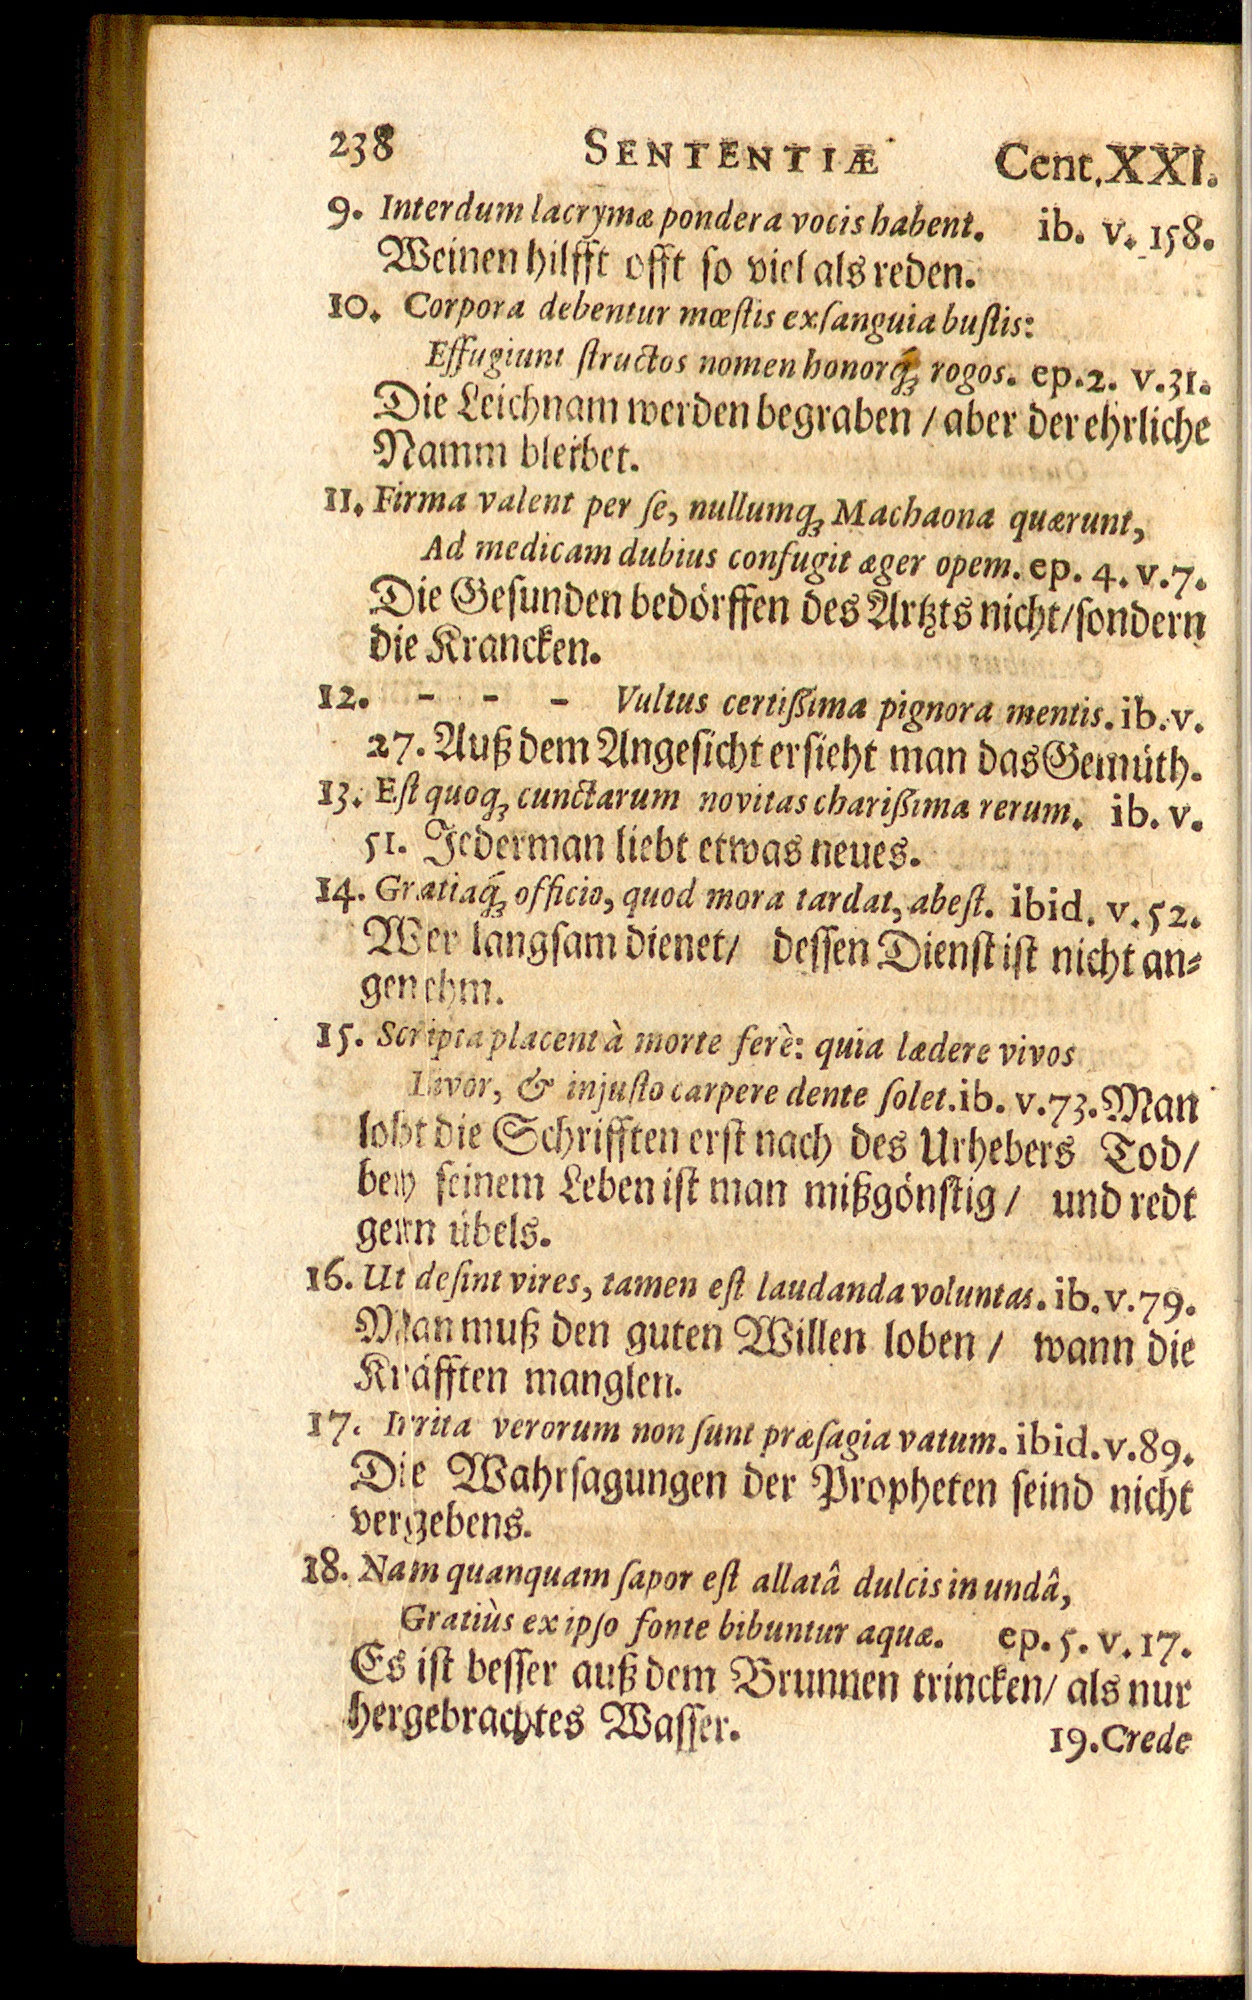 238 SENTENTIÆ Cent. XXI.
9. Interdum lacrymæ pondera vocis habent. ib. v. 158.
Weinen hilfft offt so viel als reden.
10. Corpora debentur mœſtis exſanguia buſtis:
Effugiunt ſtructos nomen honorq́ꝫ rogos. ep. 2. v. 31.
Die Leichnam werden begraben / aber der ehrliche
Namm bleibet.
11. Firma valent per ſe, nullumqꝫ Machaona quærunt,
Ad medicam dubius confugit æger opem. ep. 4. v. 7.
Die Gesunden bedörffen des Artzts nicht / sondern
die Krancken.
12. - - - Vultus certißima pignora mentis. ib. v.
27. Auß dem Angesicht ersieht man das Gemüth.
13. Eſt quoqꝫ cunctarum novitas charißima rerum. ib. v.
51. Jederman liebt etwas neues.
14. Gratiaq́ꝫ officio, quod mora tardat, abeſt. ibid. v. 52.
Wer langsam dienet / dessen Dienst ist nicht an⸗
genehm.
15. Scripta placent à morte ferè: quia lædere vivos
Livor, & injuſto carpere dente ſolet. ib. v. 73. Man
lobt die Schrifften erst nach des Urhebers Tod /
bey seinem Leben ist man mißgönstig / und redt
gern übels.
16. Ut deſint vires, tamen eſt laudanda voluntas. ib. v. 79.
Man muß den guten Willen loben / wann die
Kräfften manglen.
17. Irrita verorum non ſunt præſagia vatum. ibid. v. 89.
Die Wahrsagungen der Propheten seind nicht
vergebens.
18. Nam quanquam ſapor eſt allatâ dulcis in undâ,
Gratiùs ex ipſo fonte bibuntur aquæ. ep. 5. v. 17.
Es ist besser auß dem Brunnen trincken / als nur
hergebrachtes Wasser.
19. Crede